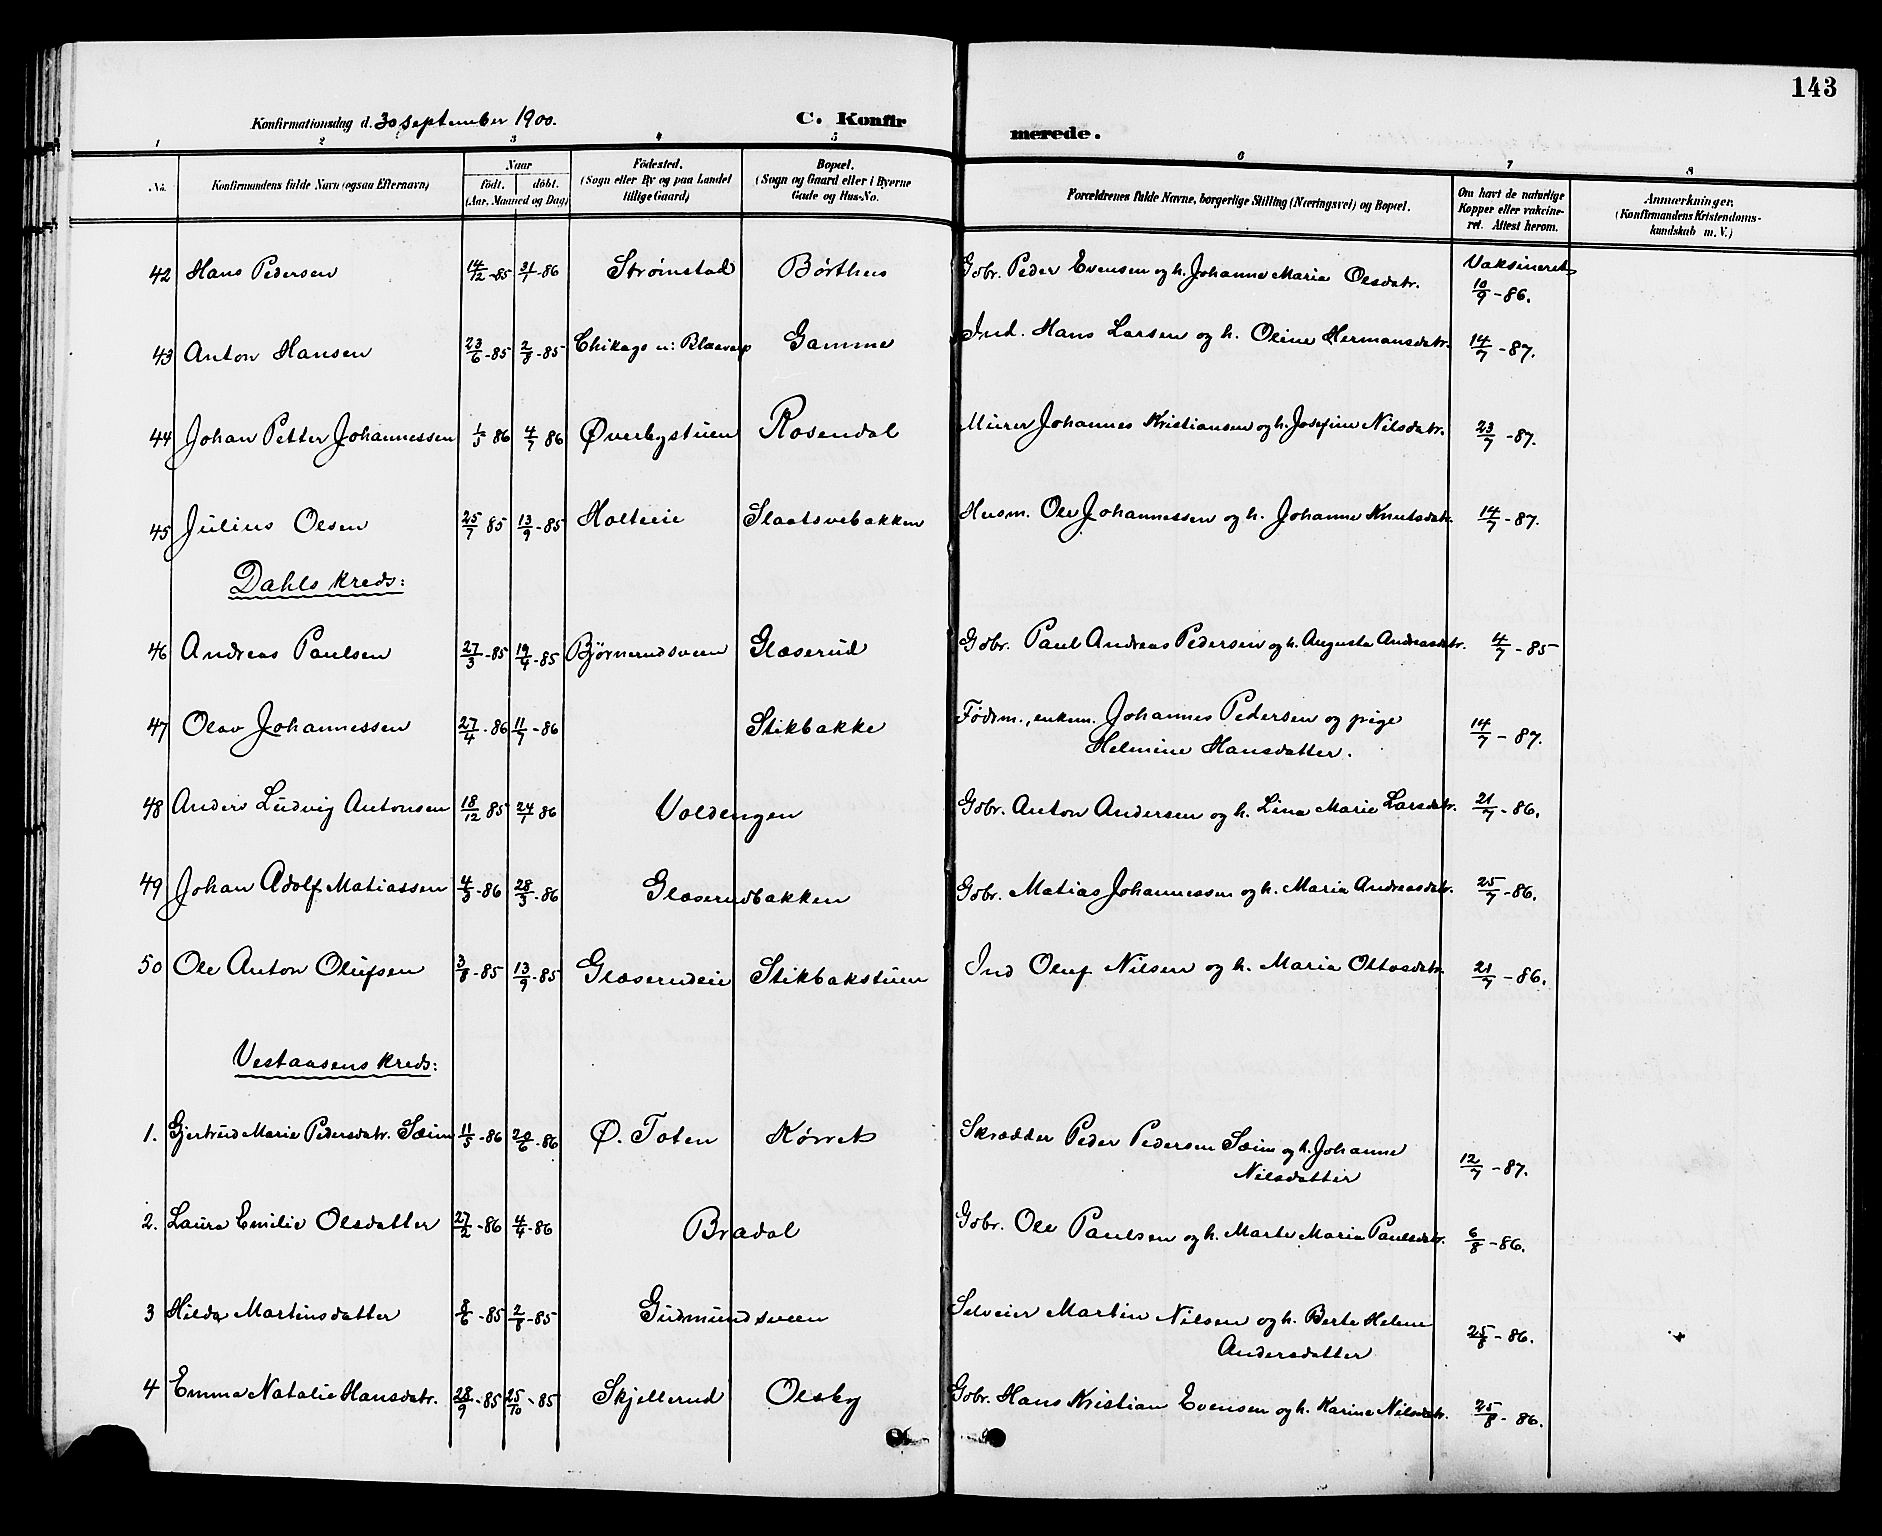 143
Konfirmationsdag d. 30 september 1900.
C. Konfirmerede.
1 2 3 4 5 6 7 8
No. Konfirmandens fulde Navn (ogsaa Efternavn) Naar født. døbt. (Aar, Maaned og Dag) Fødested. (Sogn eller By og paa Landet tillige Gaard) Bopæl. (Sogn og Gaard eller i Byerne Gade og Hus-No. Forældrenes fulde Navne, borgerlige Stilling (Næringsvei) og Bopæl. Om havt de naturlige Kopper eller vakcineret. Attest herom. Anmærkninger. (Konfirmandens Kristendomskundskab m. V.)
42 Hans Pedersen 14/12-85 21/1-86 Strømstad Børthus Gbr. Peder Evensen og h. Johanne Maria Olsdatr. Vaksineret 10/9-86.
43 Anton Hansen 23/6-85 2/8-85 Chikago u: Blaavarp Gamme Ind. Hans Larsen og h. Oline Hermansdatr. 14/7-87.
44 Johan Petter Johannessen 1/5 86 4/7 86 Øverbystuen Rosendal Murer Johannes Kristiansen og h. Josefine Nilsdatr. 23/7-87.
45 Julius Olsen 25/7 85 13/9-85 Holteeie Slaatsvebakken Husm. Ole Johannessen og h. Johanne Knutsdatr. 14/7-87.
Dahls kreds:
46 Andreas Paulsen 27/3-85 19/4-85 Bjørnerudsveen Glæserud Gbr. Paul Andreas Pedersen og h. Augusta Andreasdatr. 4/7-85
47 Olav Johannessen 27/4-86 11/7-86 Stikbakke Føderm., enkem. Johannes Pedersen og pige
Helmine Hansdatter. 14/7-87.
48 Anders Ludvig Antonsen 18/12 85 24/1 86 Voldengen Gbr. Anton Andersen og h. Lina Marie Larsdatr. 21/7-86.
49 Johan Adolf Matiassen 4/3-86 28/3-86 Glæserudbakken Gbr. Matias Johannessen og h. Maria Andreasdatr. 25/7-86.
50 Ole Anton Olufsen 3/8-85 13/9-85 Glæserudeie Stikbakstuen Ind Oluf Nilsen og h. Maria Ottosdatr. 21/7-86.
Vestaasens kreds:
1. Gjertrud Marie Pedersdatr. Sæim 11/5-86 20/6-86 Ø. Toten Kørret Skrædder Peder Pedersen Sæim og h. Johanne
Nilsdatter 12/7-87.
2. Laura Emilie Olsdatter 27/2-86 4/4-86 Brædal Gbr. Ole Paulsen og h. Marte Maria Paulsdatr. 6/8-86.
3 Hilda Martinsdatter 8/6-85 2/8-85 Gudmundsveen Selveier Martin Nilsen og h. Berte Helene
Andersdatter 25/8-86.
4 Emma Natalie Hansdatr. 28/9-85 25/10-85 Skjellerud Olsby Gbr. Hans Kristian Evensen og h. Karine Nilsdatr. 25/8-86.